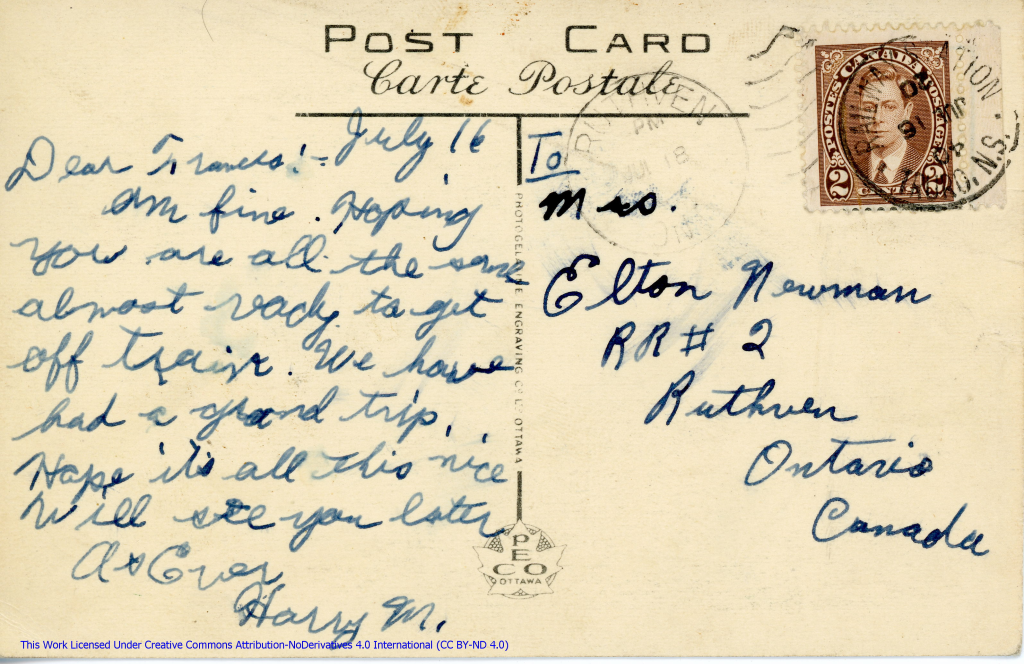 POST CARD
Carte Postale
July 16
Dear Frances! -
Am fine. Hoping
you are all the same
almost ready to get
off train. We have
had a grand trip,
Hope it's all this nice
Will see you later
As Ever
Harry M.
PHOTOGELATINE ENGRAVING CO. LTD. OTTAWA
PECO
OTTAWA
To
Mrs.
Elton Newman
RR # 2
Ruthven
Ontario
Canada
RUTHVEN
PM
JUL 18
POSTES CANADA POSTAGE
2 CENTS 2
TRURO, N.S.
This Work Licensed Under Creative Commons Attribution-NoDerivatives 4.0 International (CC BY-ND 4.0)